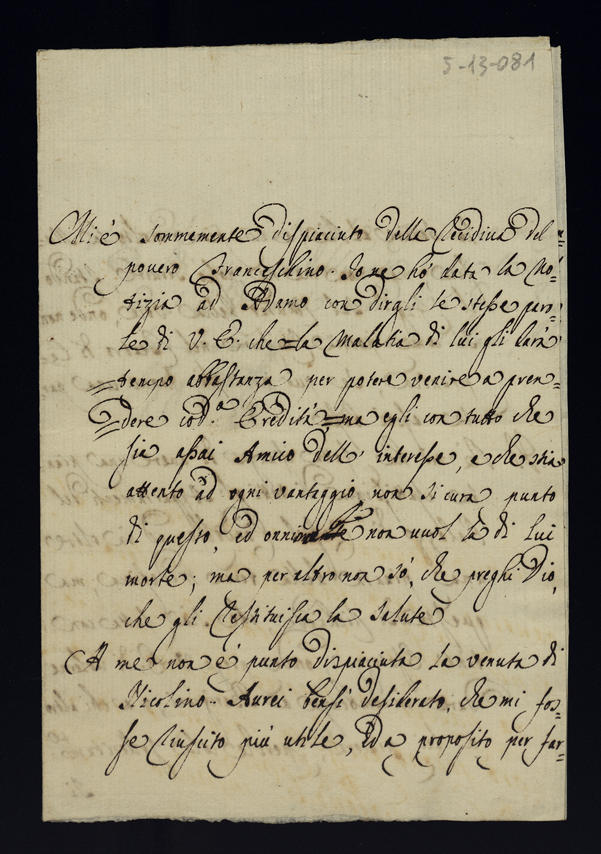 5-13-081
Mi è sommamente dispiaciuto della Recidiva del
povero Franceschino. Io ne hò data la No-
tizia ad Adamo con dirgli le stesse paro-
le di V. E. che = la Malatia di lui gli darà
= tempo abbastanza per potere venire a pren-
= dere cod.ª Eredità = ma egli con tutto che
sia assai Amico dell' interesse, e che stia
attento ad ogni vantaggio, non si cura punto
di questo, ed non vuol la di lui
morte; ma per altro non sò, che preghi Dio,
che gli Restituisca la salute
A me non è punto dispiaciuta la venuta di
Nicolino. Aurei bensì desiderato, che mi fos-
se Riuscito più utile, ed a proposito per far-